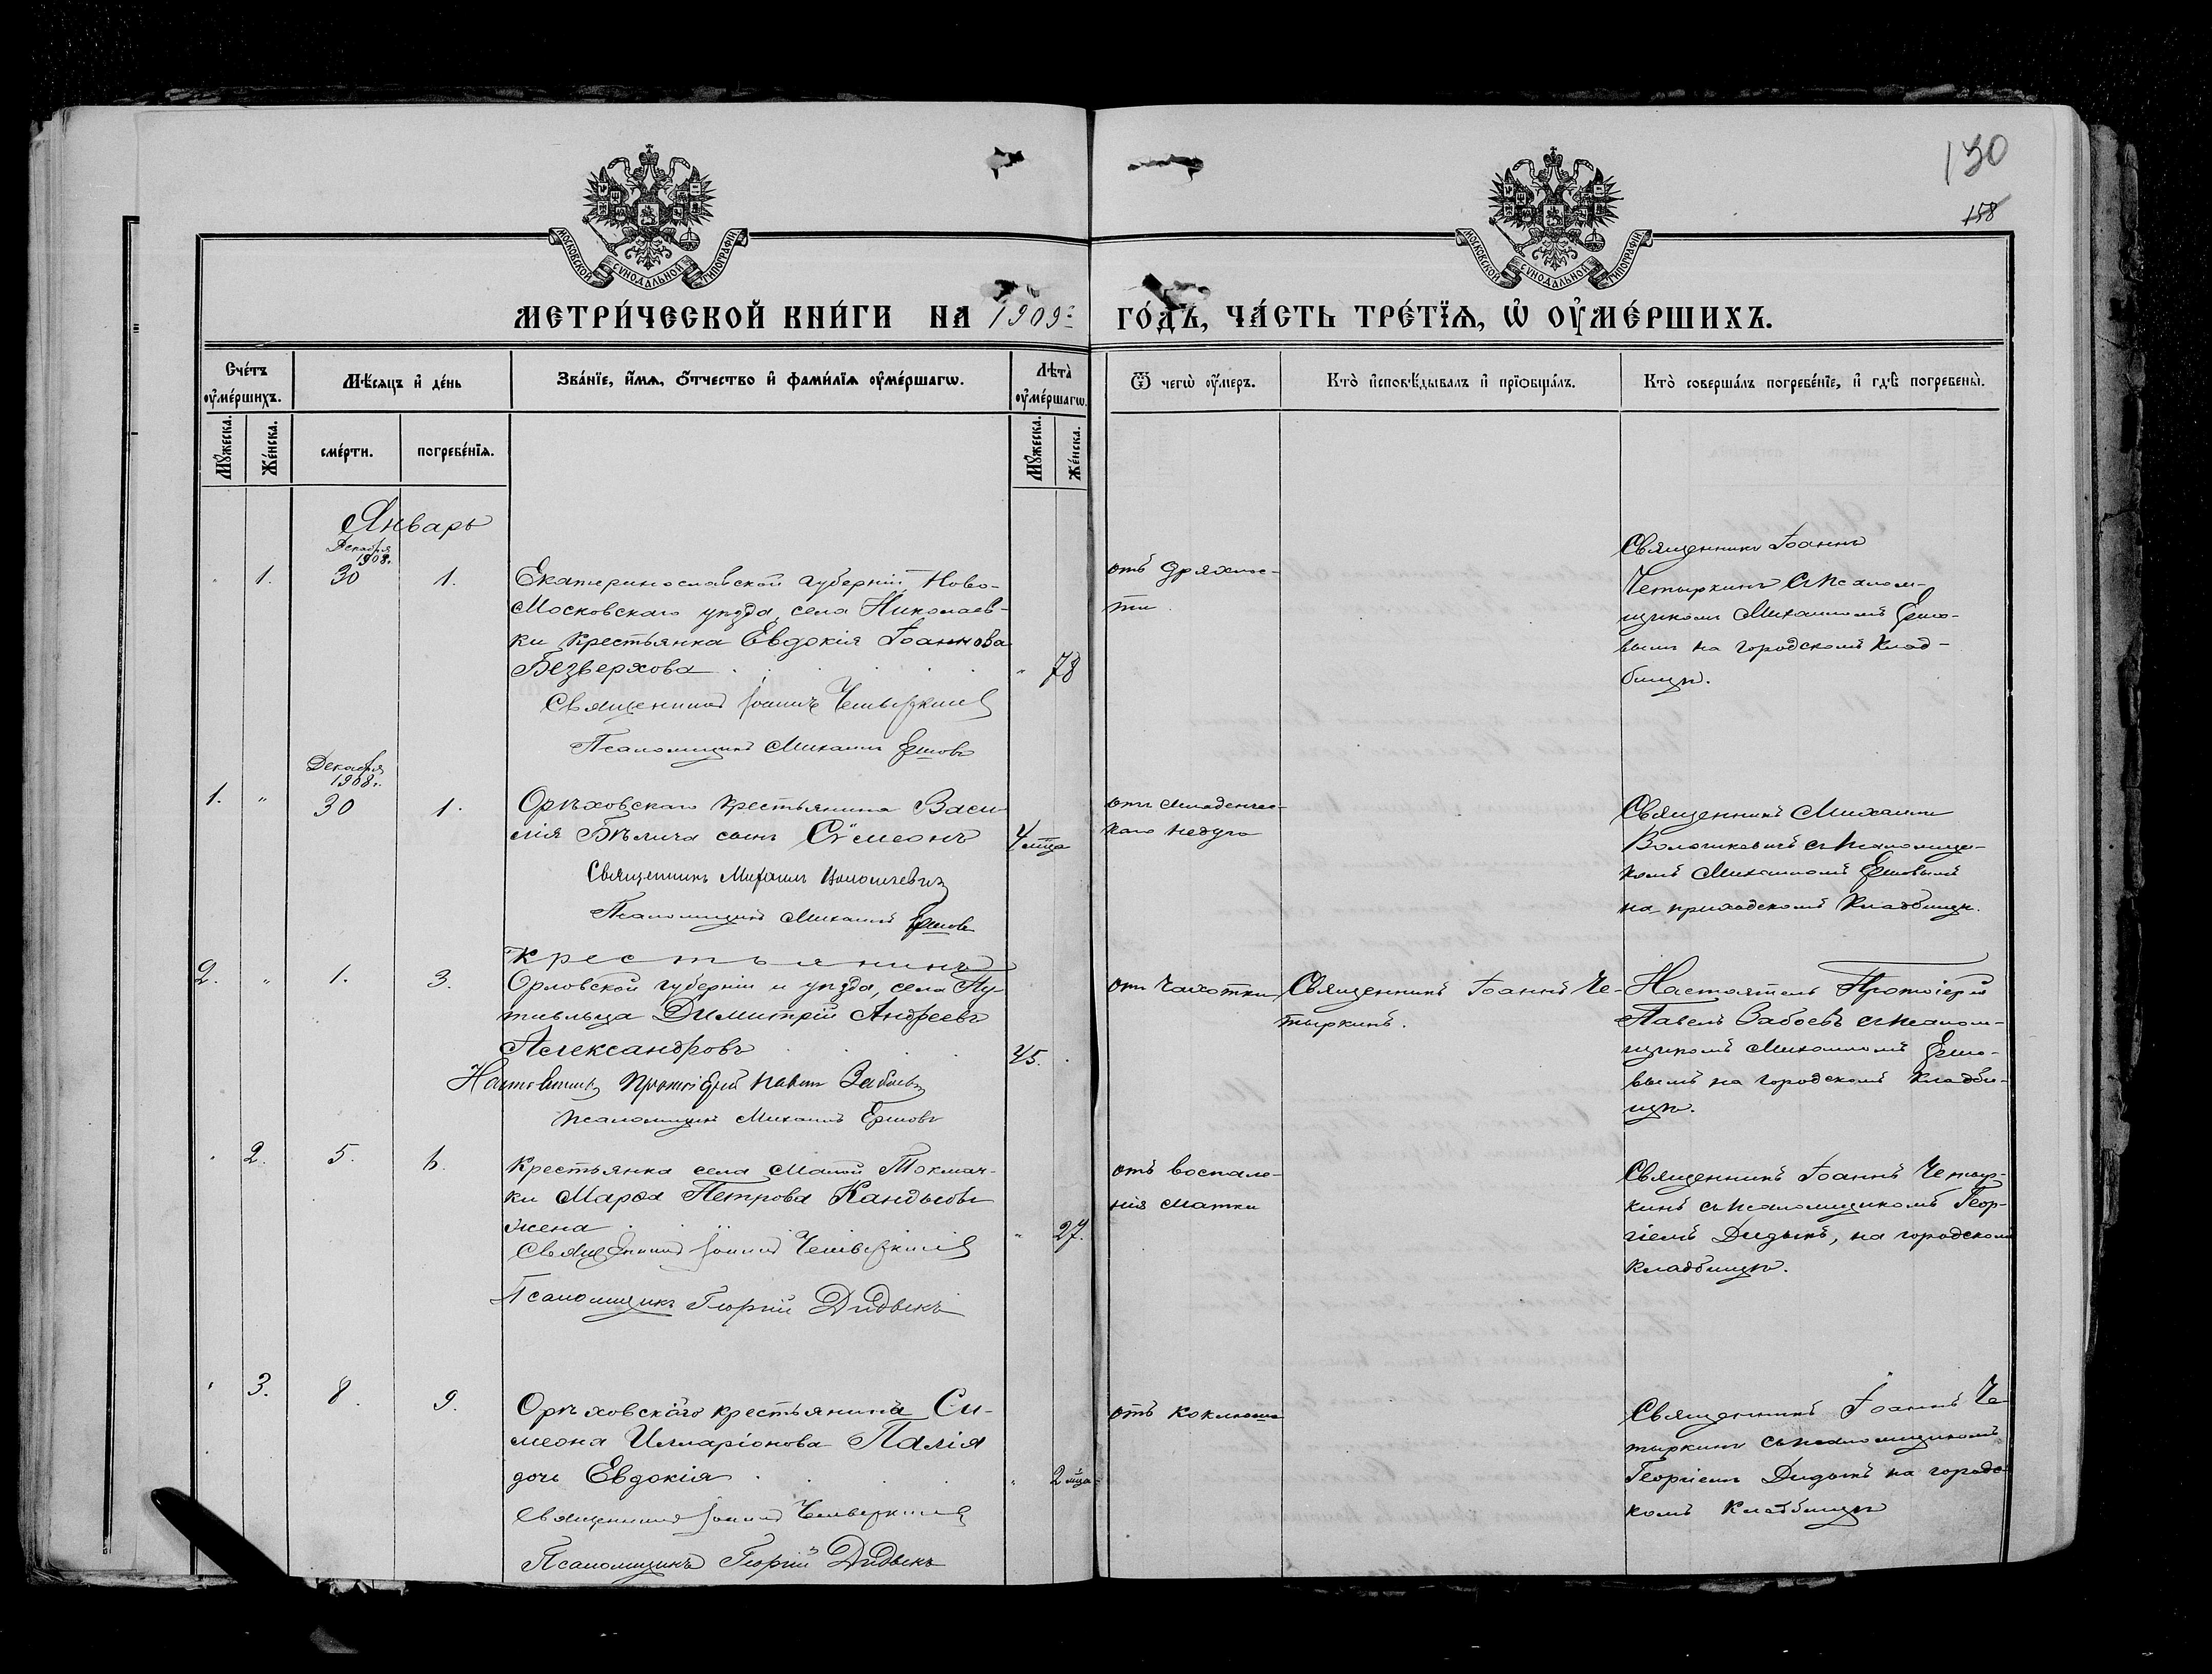 130
158
МОСКОВСКОЙ СѴНОДАЛЬНОЙ ТИПОГРАФІИ
МОСКОВСКОЙ СѴНОДАЛЬНОЙ ТИПОГРАФІИ
МЕТРИ́ЧЕСКОЙ КНИ́ГИ НА 1909 г. ГО́ДЪ, ЧА́СТЬ ТРЕ́ТЇѦ, Ѡ҆ ОУ҆МЕ́РШИХЪ.
Счётъ оу҆ме́ршихъ.
Мѣ́сяцъ и҆ де́нь
Зва́нїе, и҆́мѧ, ѻ҆́тчество и҆ фами́лїѧ оу҆ме́ршагѡ.
Лѣта̀ оу҆ме́ршагѡ.
Ѿ чегѡ̀ оу҆́меръ.
Кто̀ и҆сповѣ́дывалъ и҆ прїѡбща́лъ.
Кто̀ соверша́лъ погребе́нїе, и҆ гдѣ̀ погребены̀.
Мꙋ́жеска.
Же́нска.
сме́рти.
погребе́нїѧ.
Мꙋ́жеска.
Же́нска.
Январь
Декабря
1908.
" 1. 30 1.
Екатеринославской губерніи, Ново-
Московскаго уѣзда, села Николаев-
ки крестьянка Евдокія Іоаннова
Безверхова " 78
Священникъ Іоаннъ Четыркинъ
Псаломщикъ Михаилъ Ершовъ
отъ дряхлос-
ти.
Священникъ Іоаннъ
Четыркинъ съ псалом-
щикомъ Михаиломъ Ершо-
вымъ на городскомъ клад-
бищѣ.
Декабря
1908.
1. " 30 1.
Орѣховскаго крестьянина Васи-
лія Бѣлича сынъ Сѵмеонъ 4 мца
Священникъ Михаилъ Волошкевичъ
Псаломщикъ Михаилъ Ершовъ
отъ младенчес-
каго недуга
Священникъ Михаилъ
Волошкевичъ съ псаломщи-
комъ Михаиломъ Ершовымъ
на приходскомъ кладбищѣ.
2. " 1. 3.
крестьянинъ
Орловской губерніи и уѣзда, села Пу-
тивльца Димитрій Андреевъ
Александровъ 45.
Настоятель Протоіерей Павелъ Забоевъ
Псаломщикъ Михаилъ Ершовъ
отъ чахотки
Священникъ Іоаннъ Че-
тыркинъ.
Настоятель Протоіерей
Павелъ Забоевъ съ псалом-
щикомъ Михаиломъ Ершо-
вымъ на городскомъ кладби-
щѣ.
" 2. 5. 6.
Крестьянка села Малой Токмач-
ки Марѳа Петрова
жена " 27.
Священникъ Іоаннъ Четыркинъ
Псаломщикъ Георгій Дидыкъ
отъ воспале-
нія матки
Священникъ Іоаннъ Четыр-
кинъ съ псаломщикомъ Геор-
гіемъ Дидыкъ, на городскомъ
кладбищѣ.
" 3. 8. 9.
Орѣховскаго крестьянина Си-
меона Илларіонова Палія
дочь Евдокія " 2 мца
Священникъ Іоаннъ Четыркинъ
Псаломщикъ Георгій Дидыкъ
отъ коклюша
Священникъ Іоаннъ Че-
тыркинъ съ псаломщикомъ
Георгіемъ Дидыкъ на городс-
комъ кладбищѣ